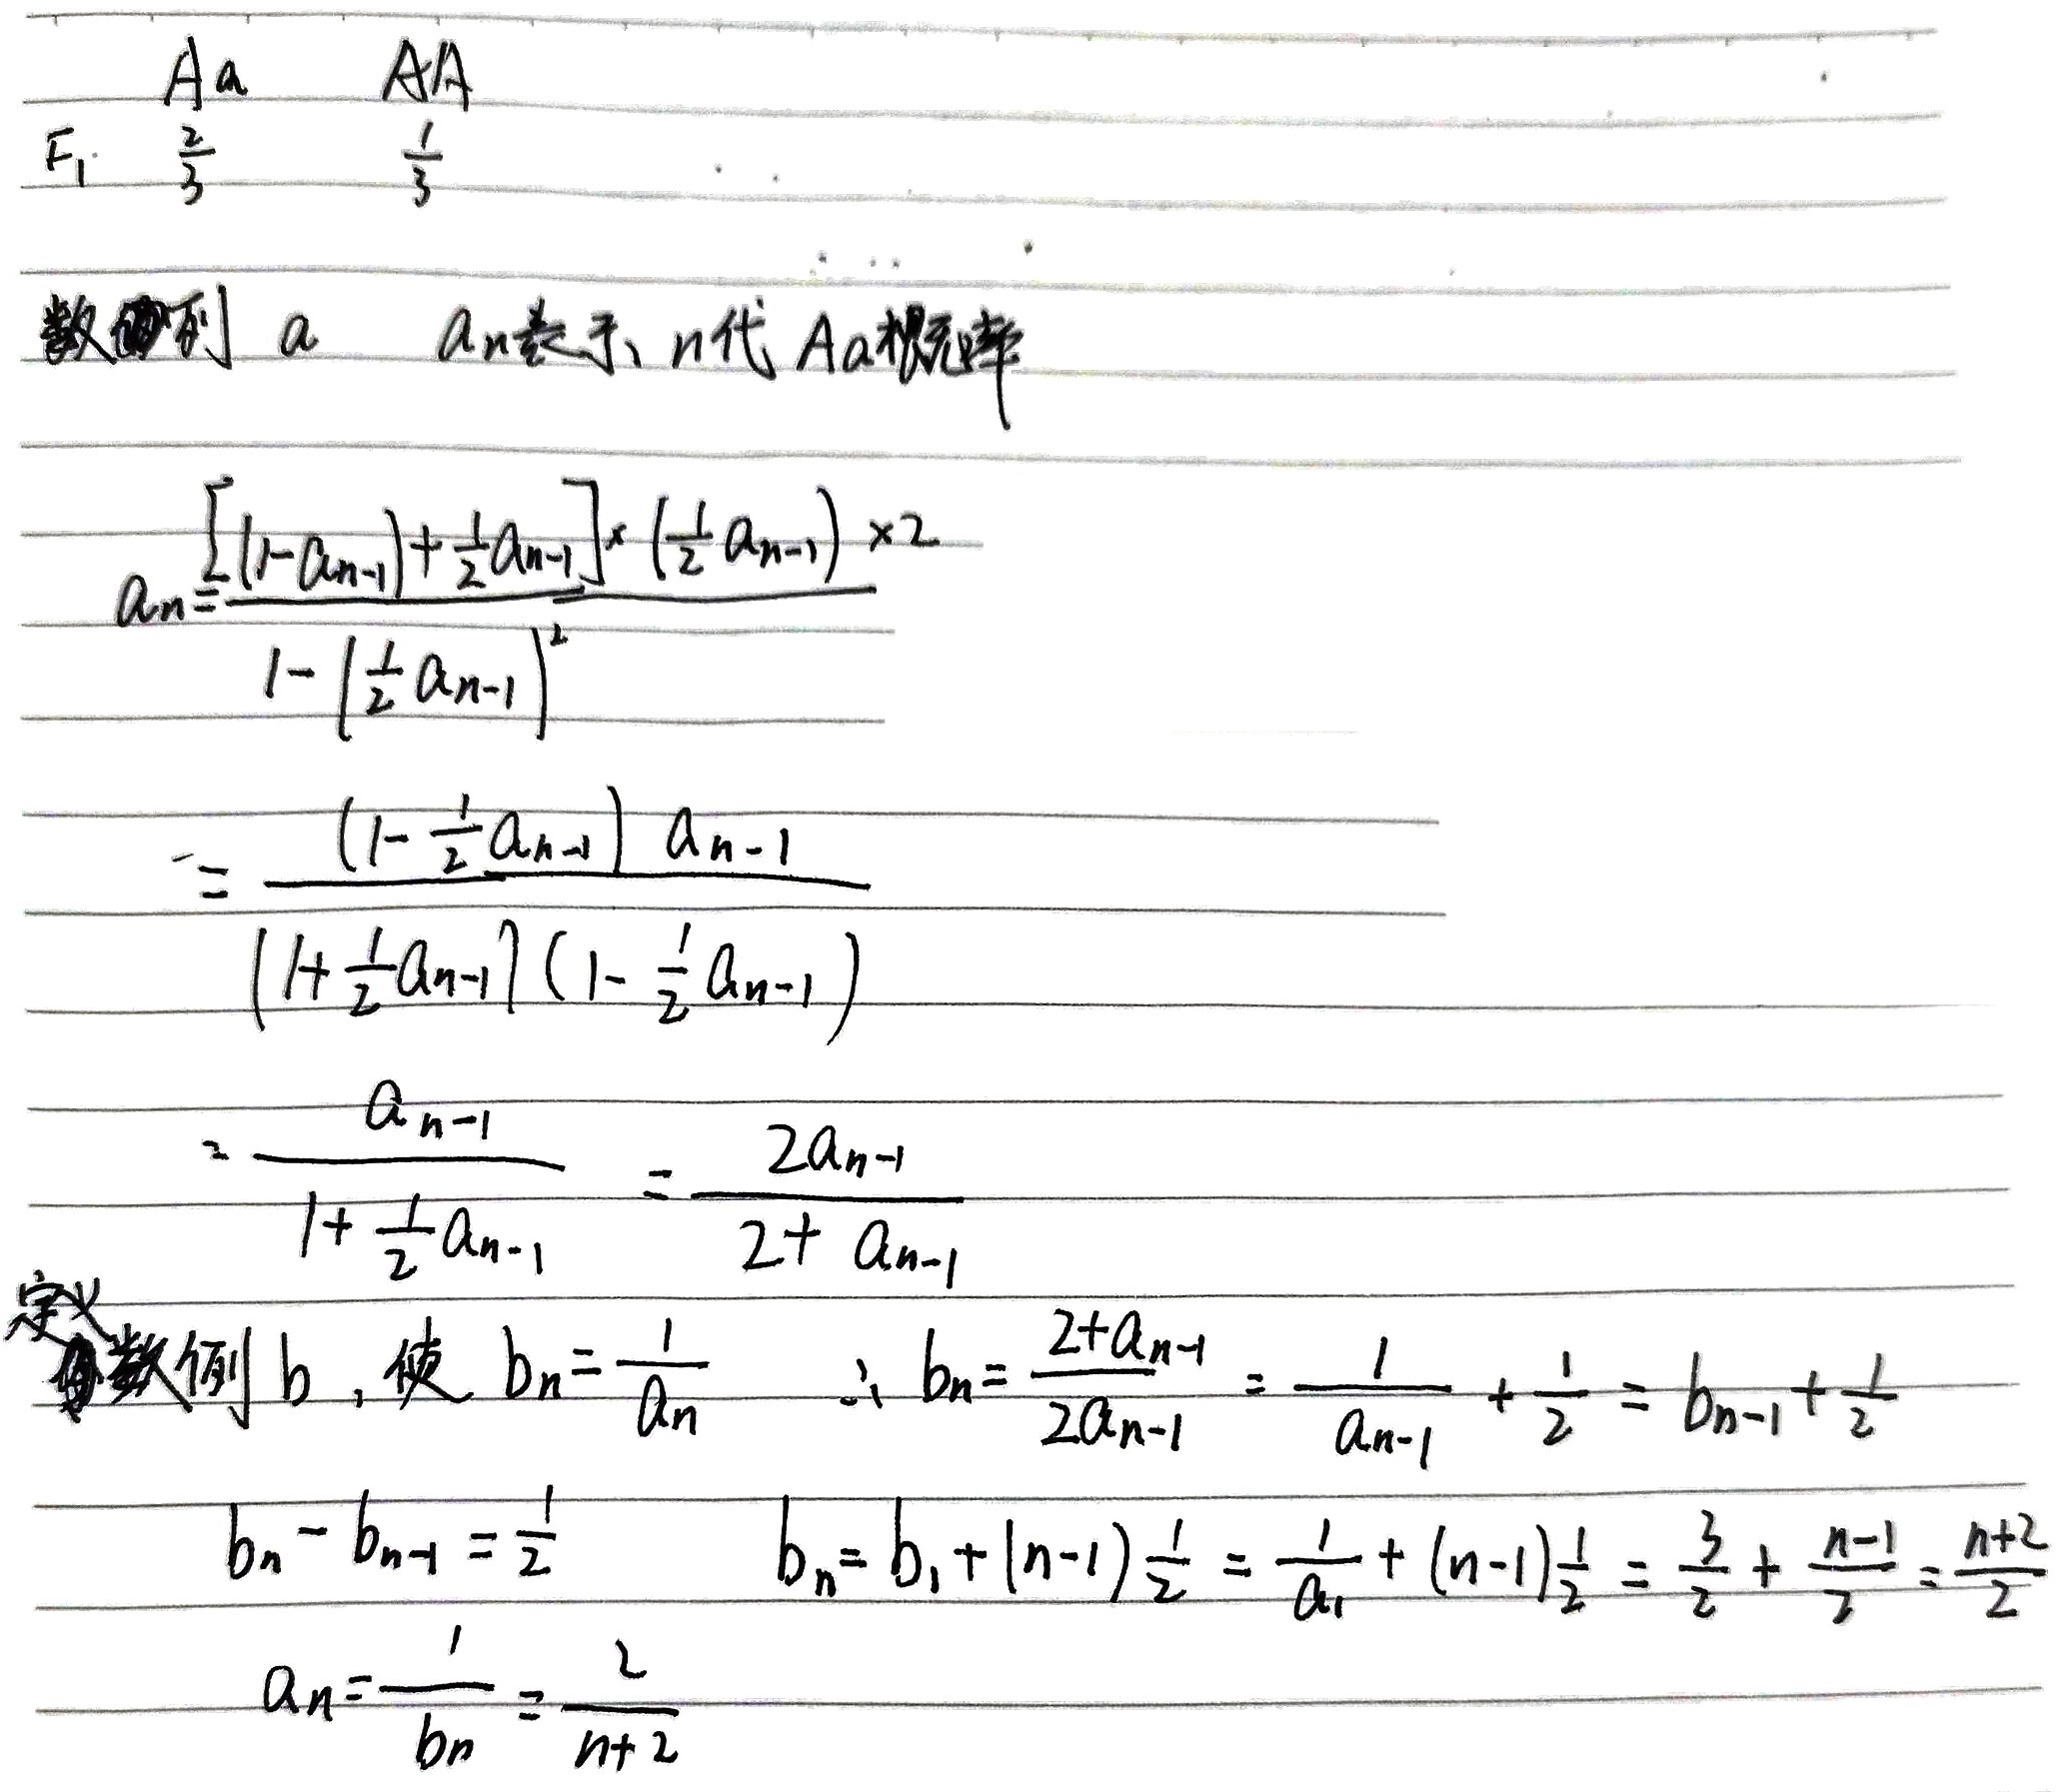 Aa AA
F₁. 2/3 1/3
数列 a aₙ表示 n代 Aa概率
aₙ = [(1-aₙ₋₁)+1/2 aₙ₋₁]×(1/2 aₙ₋₁)×2 / 1-(1/2 aₙ₋₁)²
= (1-1/2 aₙ₋₁) aₙ₋₁ / (1+1/2 aₙ₋₁)(1-1/2 aₙ₋₁)
= aₙ₋₁ / 1+1/2 aₙ₋₁ = 2aₙ₋₁ / 2+aₙ₋₁
定义
数例 b , 使 bₙ = 1/aₙ ∴ bₙ = 2+aₙ₋₁ / 2aₙ₋₁ = 1/aₙ₋₁ + 1/2 = bₙ₋₁ + 1/2
bₙ - bₙ₋₁ = 1/2 bₙ = b₁ + (n-1) 1/2 = 1/a₁ + (n-1) 1/2 = 3/2 + n-1/2 = n+2/2
aₙ = 1/bₙ = 2/n+2